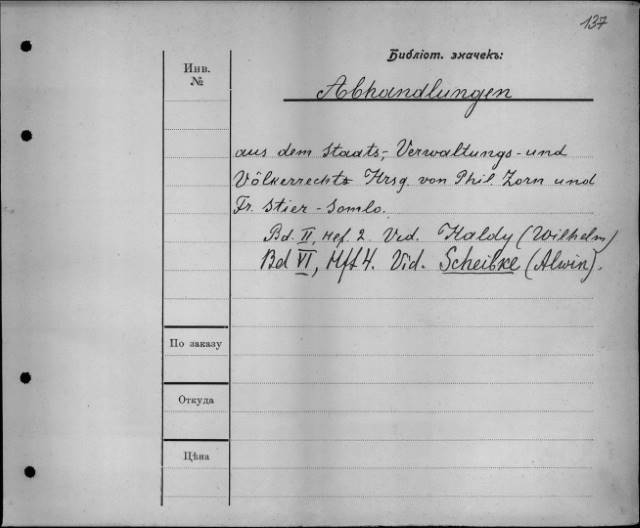 137
Библіот. значекъ:
Инв.
№
Abhandlungen
aus dem Staats-, Verwaltungs- und
Völkerrechts Hrsg. von Phil. Zorn und
Fr. Stier-Somlo.
Bd. II, Hef. 2. Vid. Kaldy (Wilhelm)
Bd VI, Hft 4. Vid. Scheibke (Alwin).
По заказу
Откуда
Цѣна